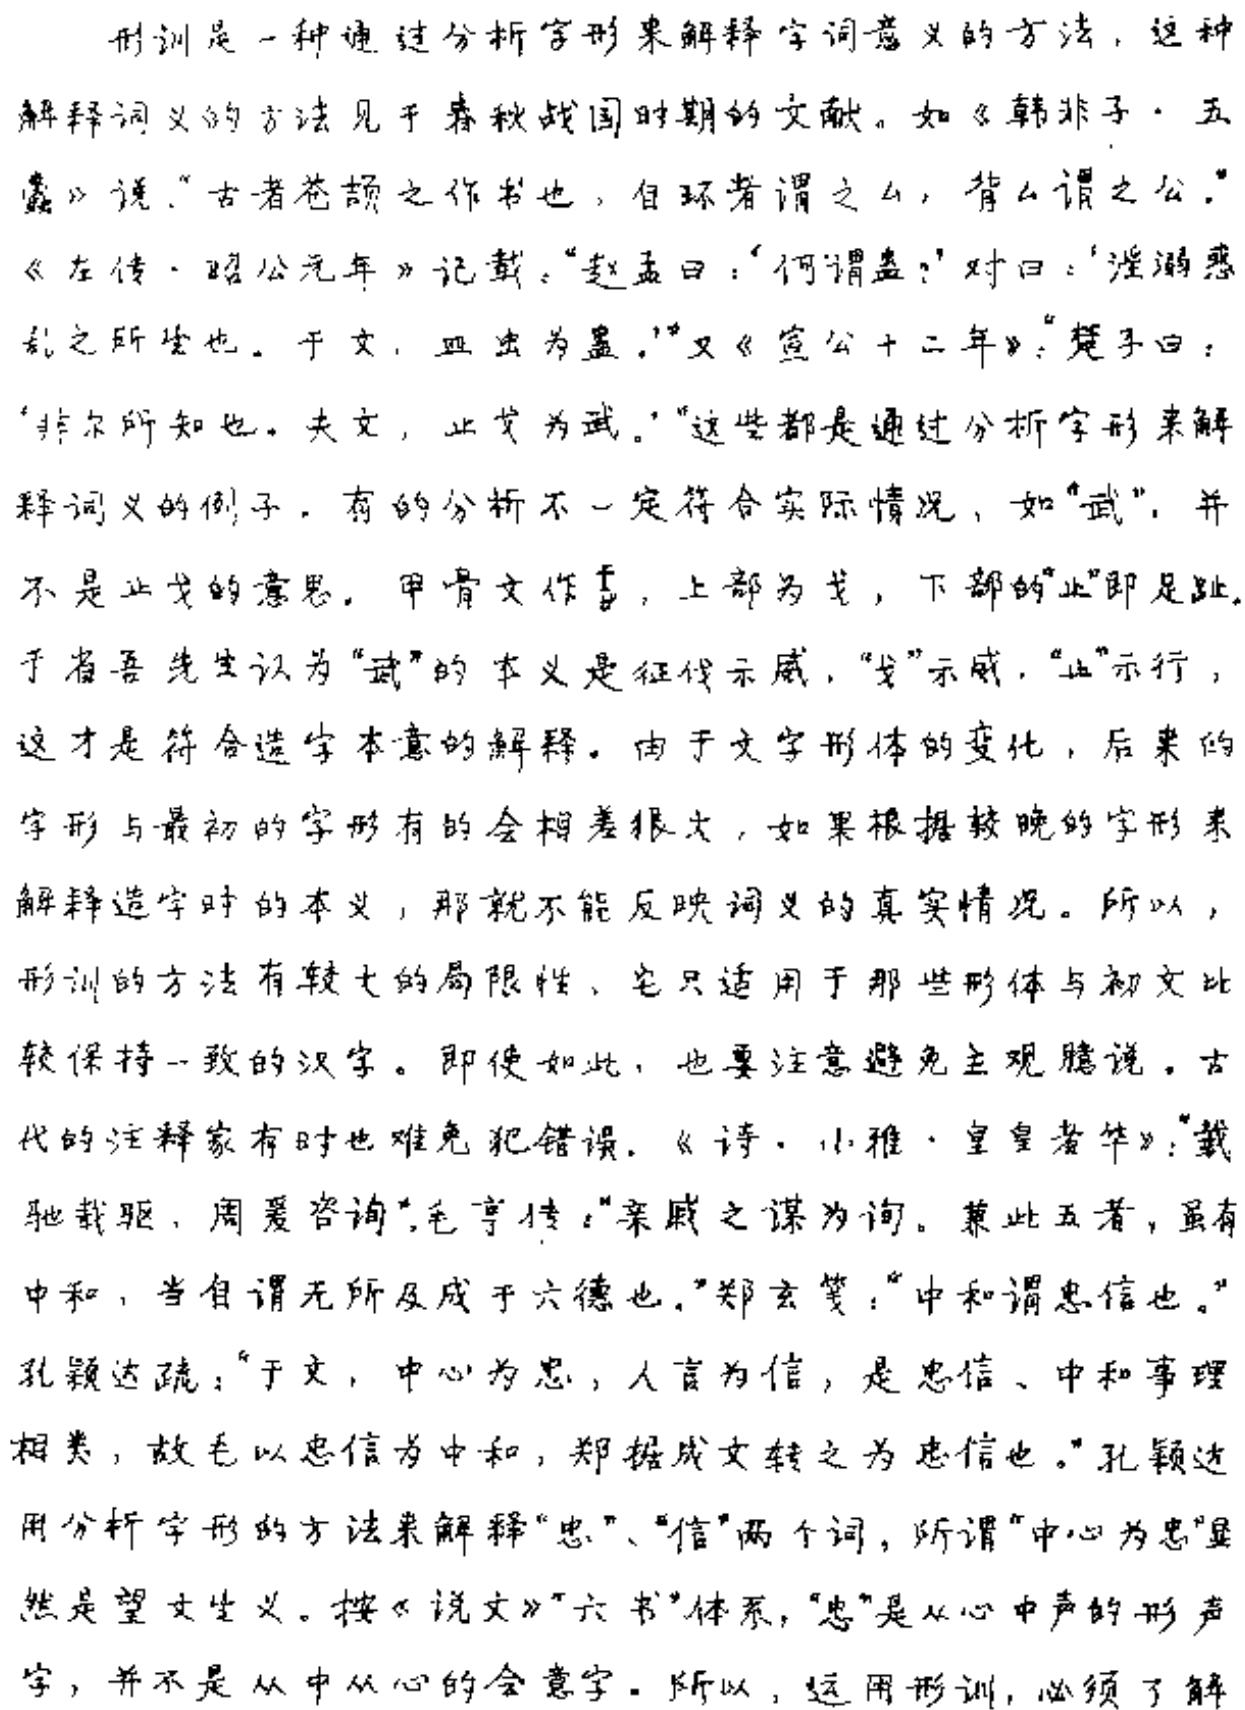 形训是一种通过分析字形来解释字词意义的方法，这种
解释词义的方法见于春秋战国时期的文献。如《韩非子·五
蠹》说：“古者苍颉之作书也，自环者谓之厶，背厶谓之公。”
《左传·昭公元年》记载：“赵孟曰：‘何谓蛊？’对曰：‘淫溺惑
乱之所生也。于文，皿虫为蛊。’”又《宣公十二年》：“楚子曰：
‘非尔所知也。夫文，止戈为武。’”这些都是通过分析字形来解
释词义的例子。有的分析不一定符合实际情况，如“武”，并
不是止戈的意思。甲骨文作，上部为戈，下部的“止”即足趾。
于省吾先生认为“武”的本义是征伐示威，“戈”示威，“止”示行，
这才是符合造字本意的解释。由于文字形体的变化，后来的
字形与最初的字形有的会相差很大，如果根据较晚的字形来
解释造字时的本义，那就不能反映词义的真实情况。所以，
形训的方法有较大的局限性，它只适用于那些形体与初文比
较保持一致的汉字。即使如此，也要注意避免主观臆说。古
代的注释家有时也难免犯错误。《诗·小雅·皇皇者华》：“载
驰载驱，周爰咨询”，毛亨传：“亲戚之谋为询。兼此五者，虽有
中和，当自谓无所及成于六德也。”郑玄笺：“中和谓忠信也。”
孔颖达疏：“于文，中心为忠，人言为信，是忠信、中和事理
相类，故毛以忠信为中和，郑据成文转之为忠信也。”孔颖达
用分析字形的方法来解释“忠”、“信”两个词，所谓“中心为忠”显
然是望文生义。按《说文》“六书”体系，“忠”是从心中声的形声
字，并不是从中从心的会意字。所以，运用形训，必须了解